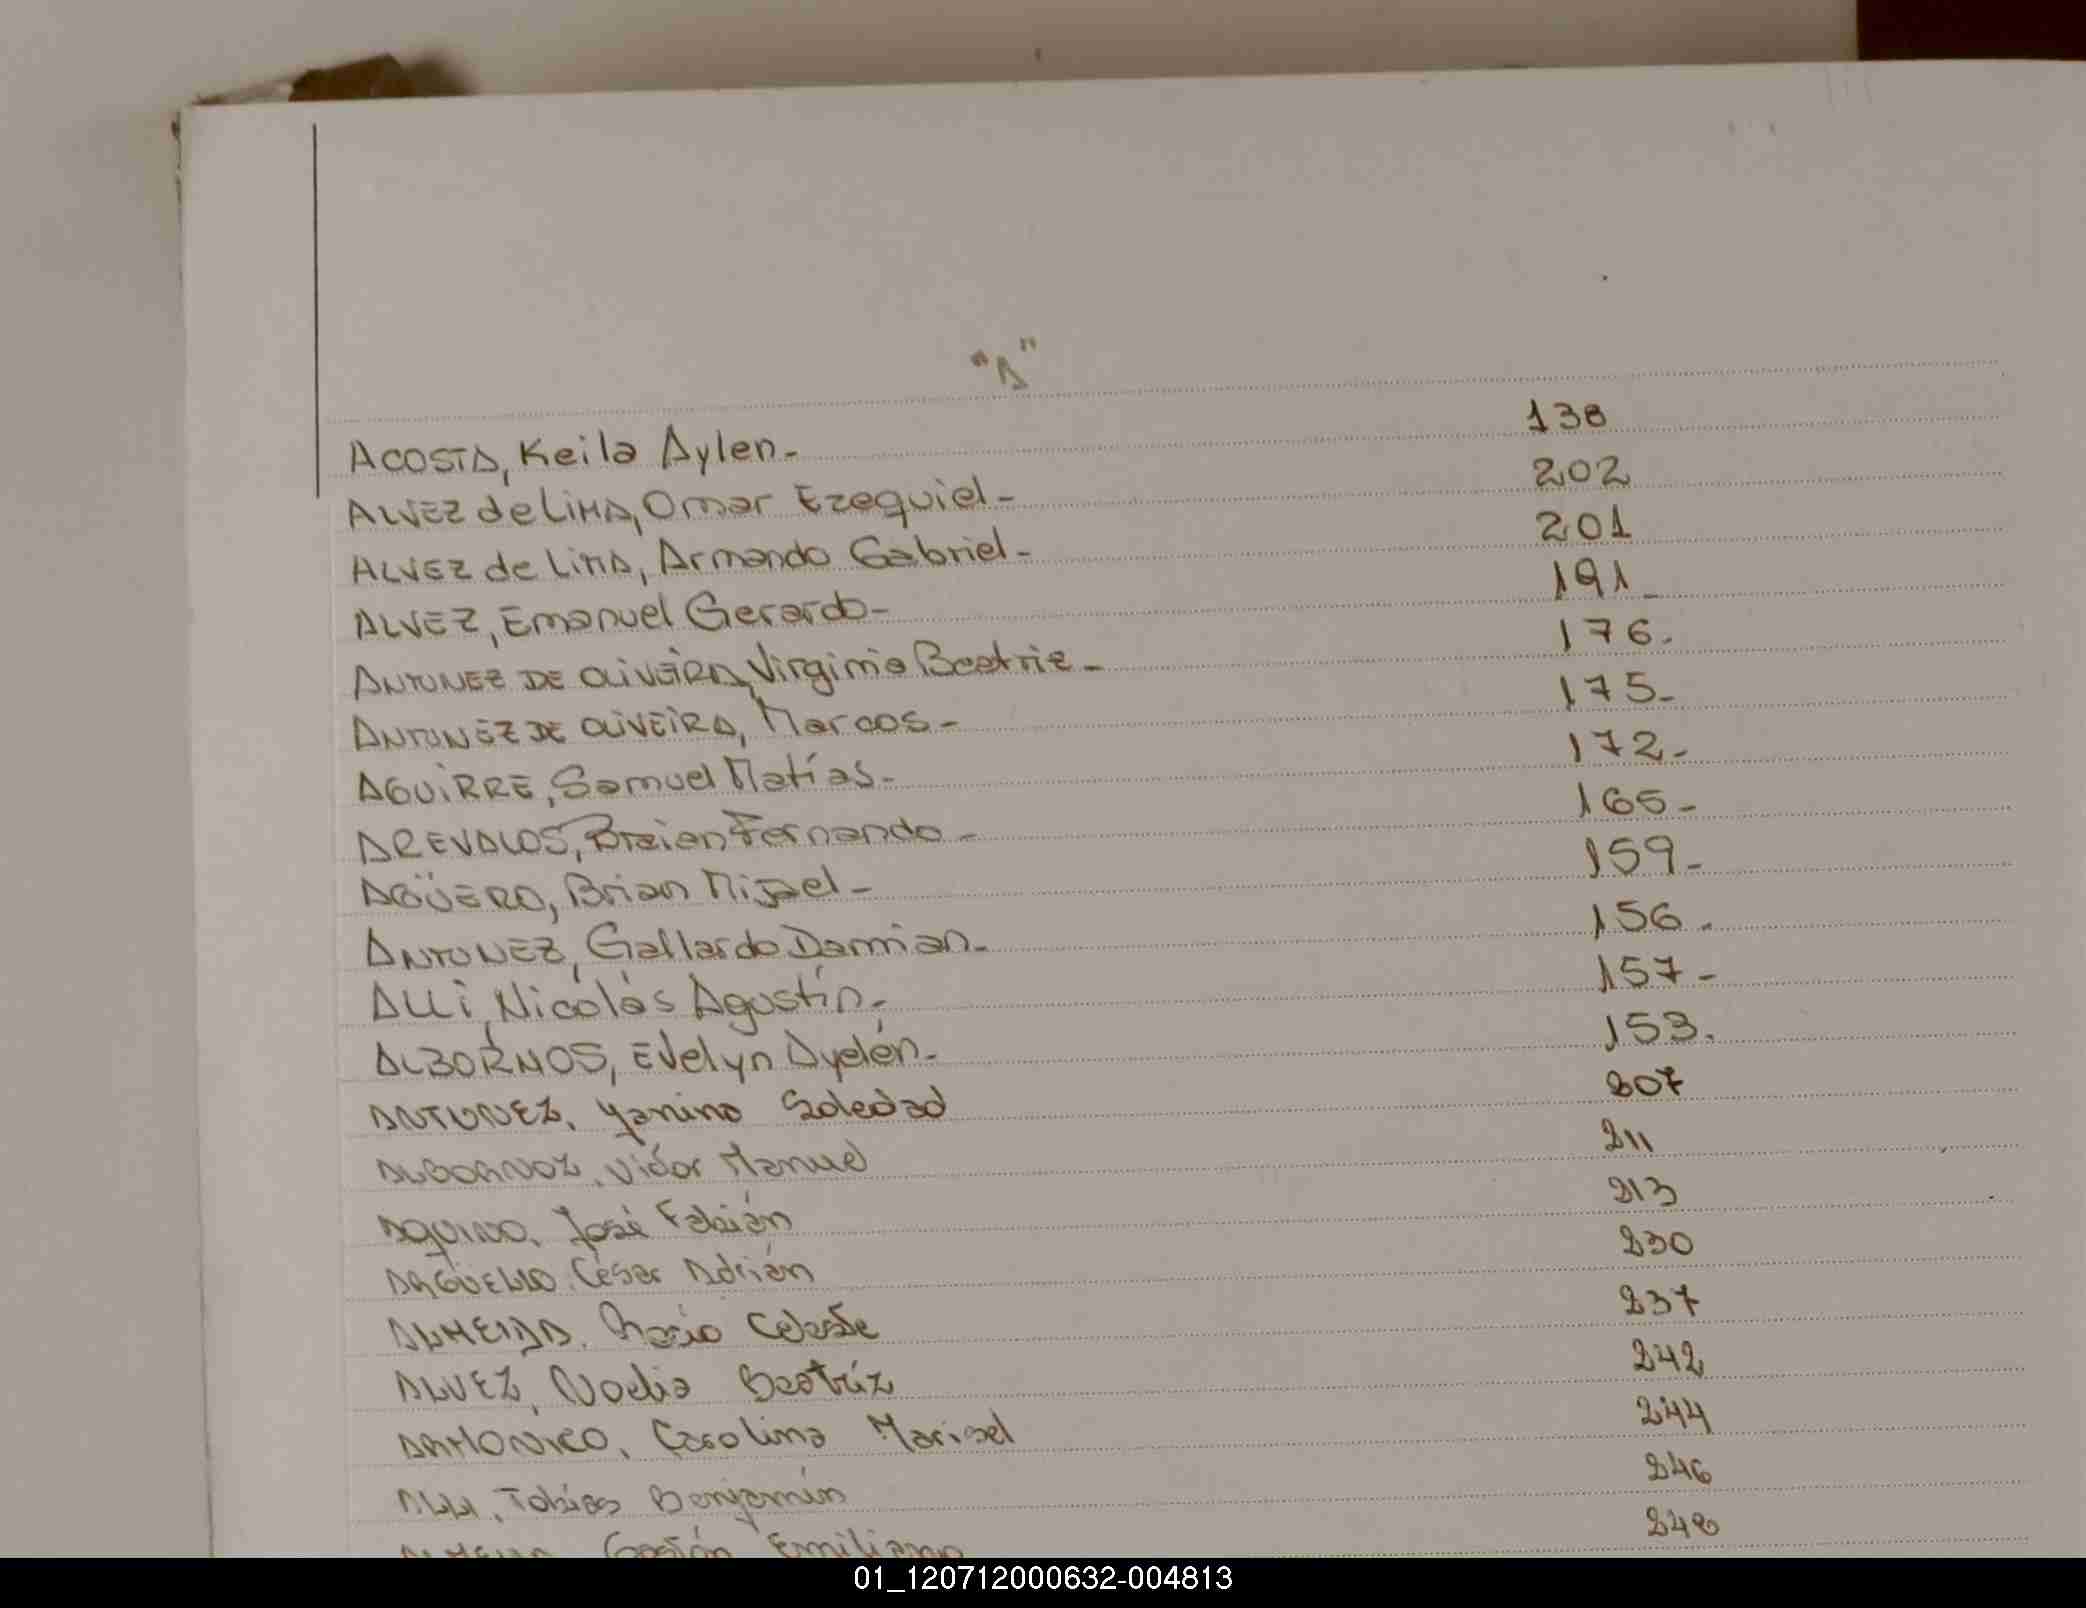 "A"
ACOSTA, Keila Aylen- 138
ALVEZ de LIMA, Omar Ezequiel- 202
ALVEZ de LIMA, Armando Gabriel- 201
ALVEZ, Emanuel Gerardo- 191-
ANTUNEZ DE OLIVEIRA, Virginia Beatriz- 176-
ANTUNEZ DE OLIVEIRA, Marcos- 175-
AGUIRRE, Samuel Matías- 172-
AREVALOS, Braian Fernando- 165-
AGÜERO, Brian Misael- 159-
ANTUNEZ, Gallardo Damian- 156-
ALLI, Nicolás Agustín- 157-
ALBORNOS, Evelyn Ayelén- 153.
ANTUNEZ, Yanina Soledad 207
ALBORNOZ, Victor Manuel 211
AQUINO, José Fabián 213
ARGÜELLO, César Adrián 230
ALMEIDA, Rocio Celeste 237
ALVEZ, Noelia Beatríz 242
Carolina Marisel 244
ALLI, Tobias Benjamín 246
Gastón Emiliano 248
01_120712000632-004813